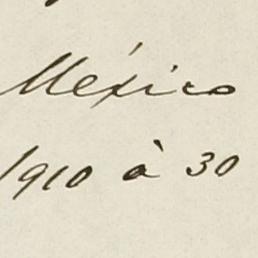 México
1910 à 30